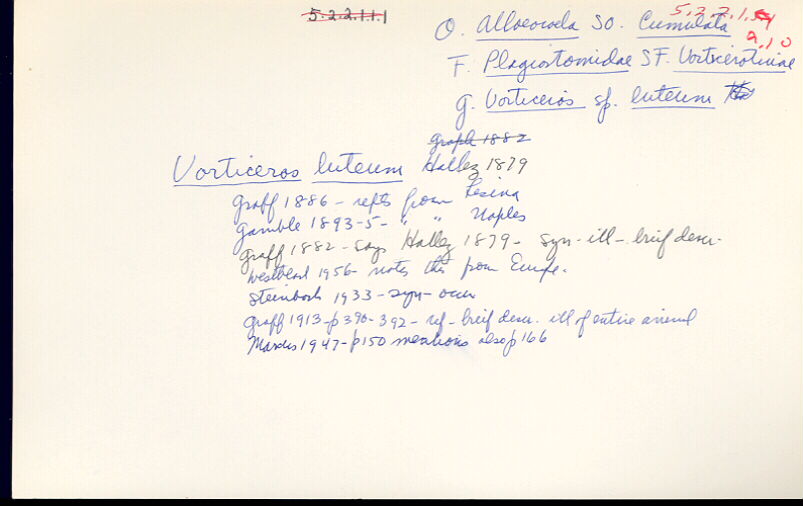 5.2.2.1.1.1
5.2.2.1.5
9.10
O. Alloeocoela SO. Cumulata
F. Plagiostomidae SF. Vorticerotinae
G. Vorticeros sp. luteum
graph 1882
Vorticeros luteum Hallez 1879
graff 1886 - repts from Lesina
Gamble 1893-5 - " " Naples
graff 1882 - says Hallez 1879 - syn - ill - brief descr.
Westblad 1956 - notes this from Europe.
Steinbock 1933 - syn - occur
graff 1913 - p 390-392 - ref - breif descr. ill of entire animal
Marcus 1947 - p150 mentions also p 166